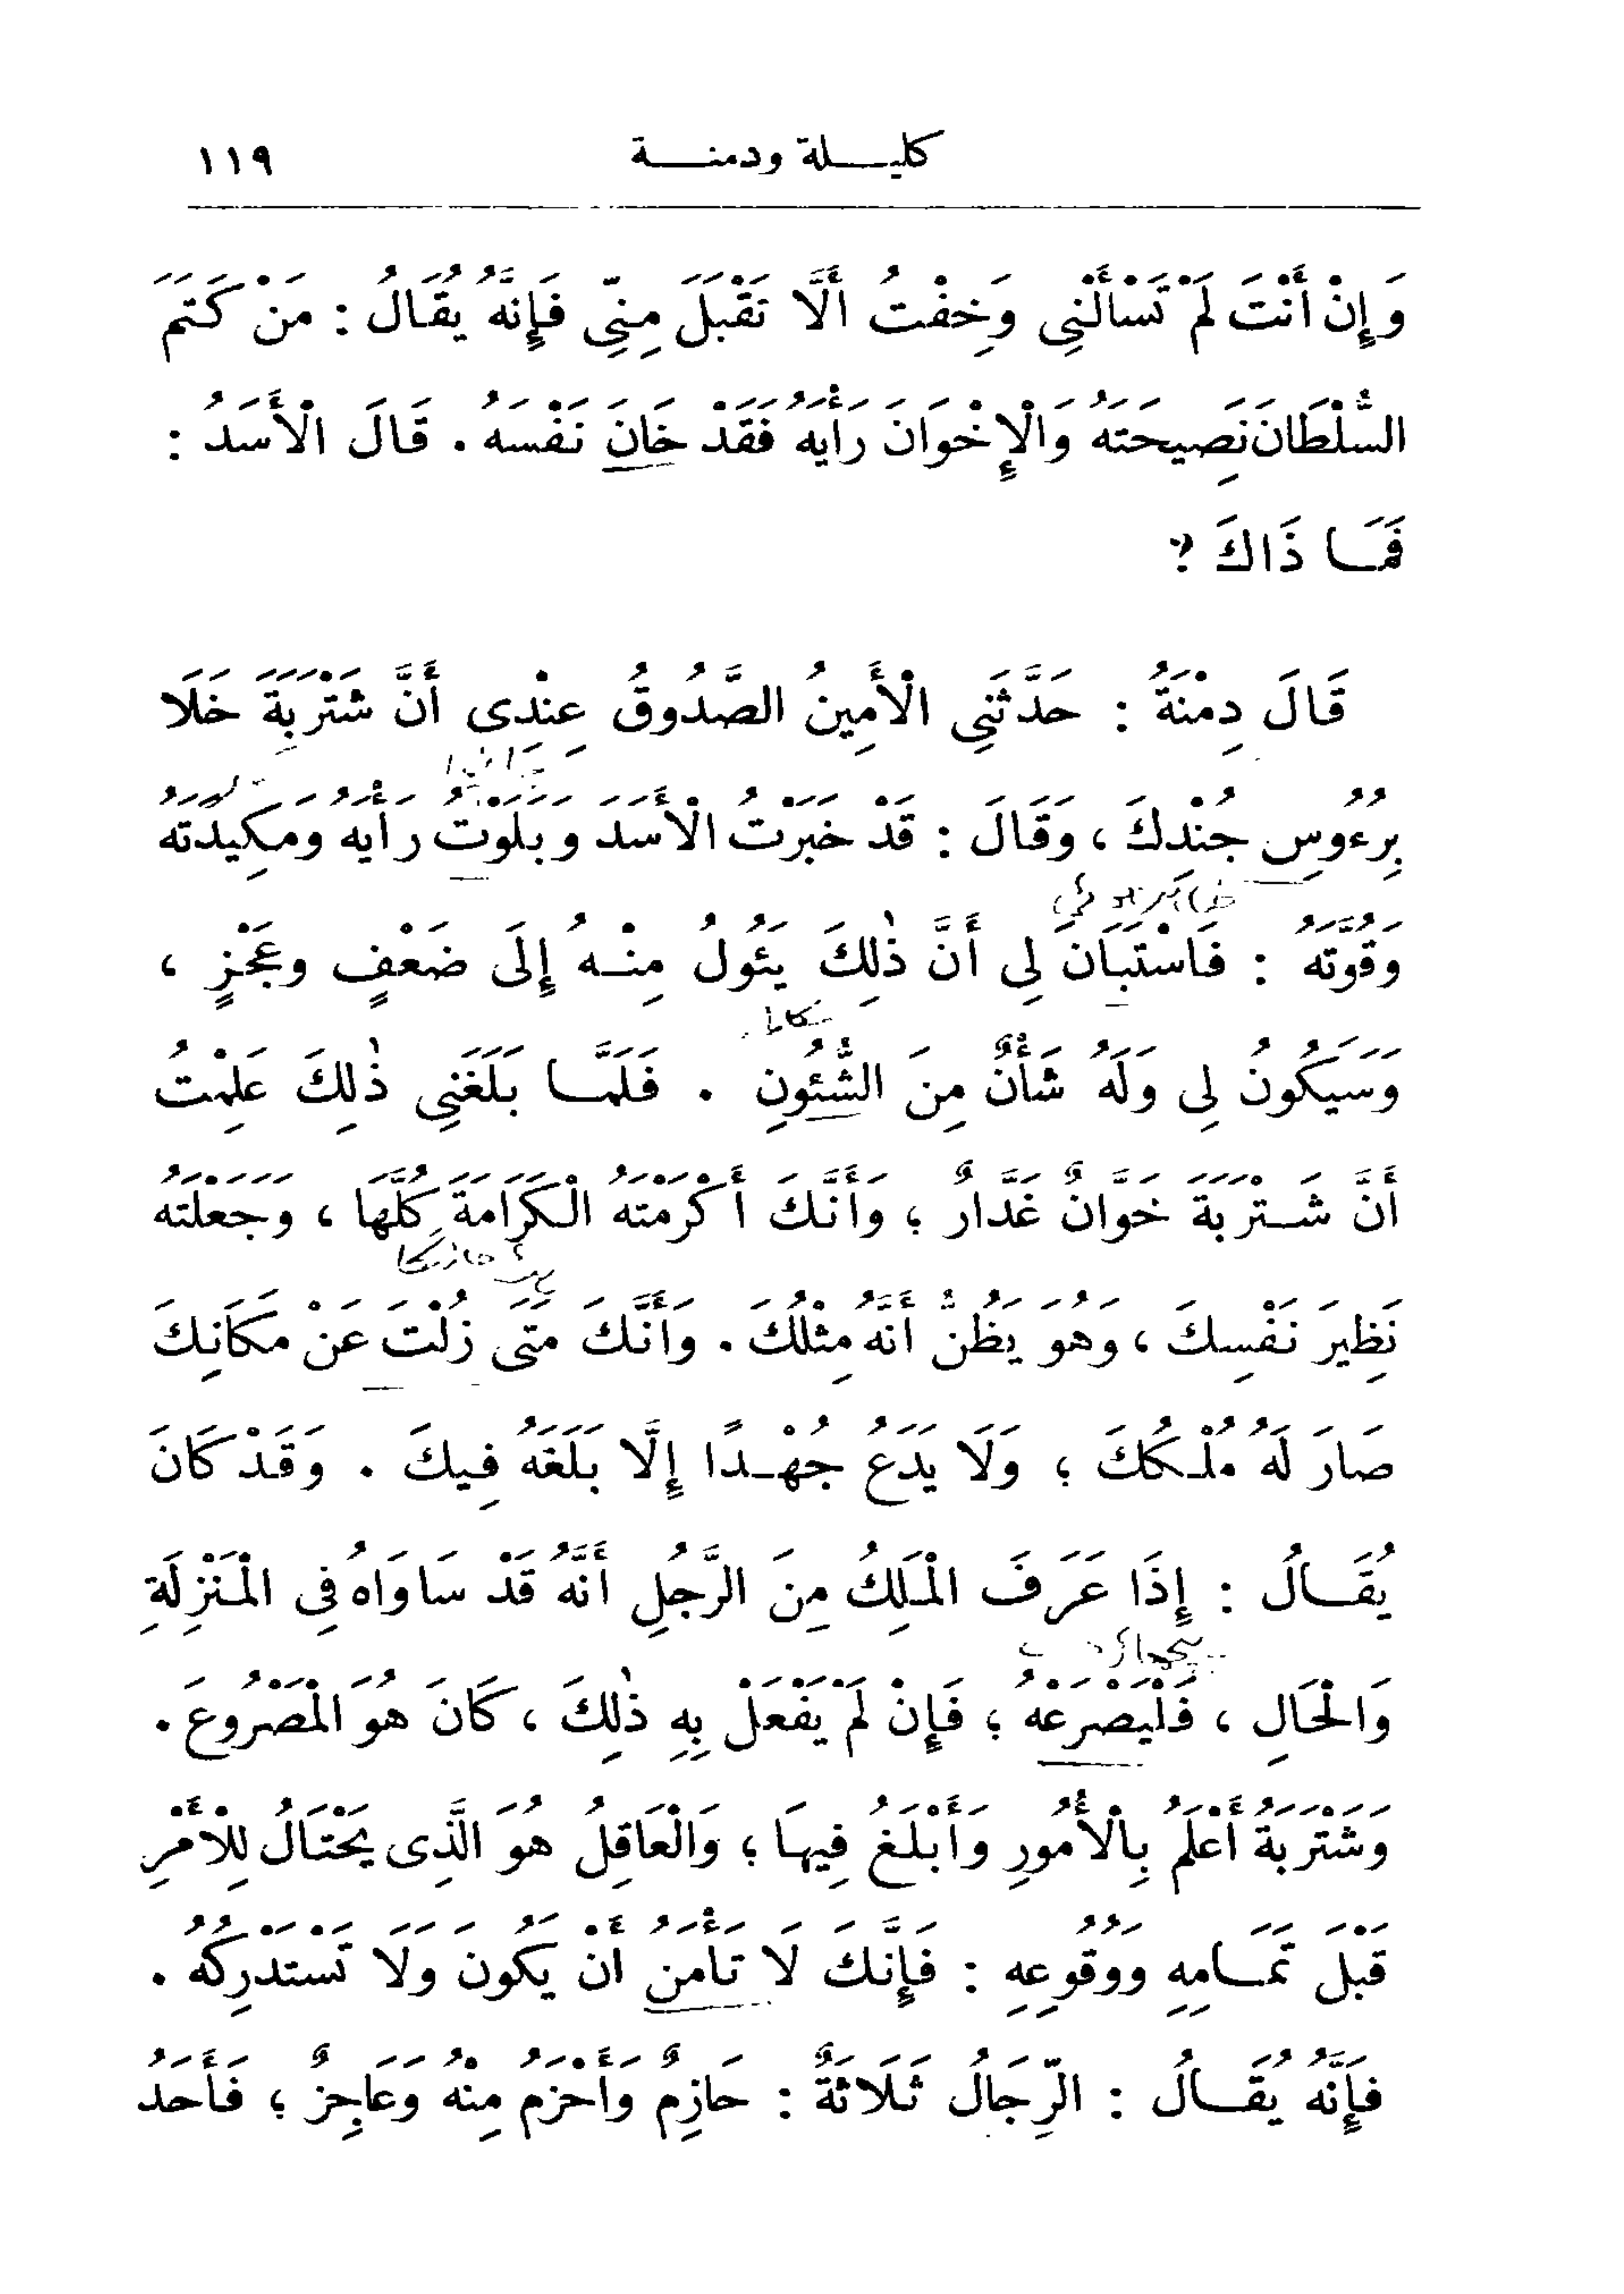 كليلة ودمنة ١١٩
وَإِنْ أَنْتَ لَمْ تَسْأَلْنِى وَخِفْتُ أَلَّا تَقْبَلَ مِنِّى فَإِنَّهُ يُقَالُ : مَنْ كَتَمَ
السُّلْطَانَ نَصِيحَتَهُ وَالْإِخْوَانَ رَأْيَهُ فَقَدْ خَانَ نَفْسَهُ . قَالَ الْأَسَدُ :
فَمَا ذَاكَ ؟
قَالَ دِمْنَةُ : حَدَّثَنِى الْأَمِينُ الصَّدُوقُ عِنْدِى أَنَّ شَتْرَبَةَ خَلَا
بِرُءُوسِ جُنْدِكَ ، وَقَالَ : قَدْ خَبَرْتُ الْأَسَدَ وَبَلَوْتُ رَأْيَهُ وَمَكِيدَتَهُ
وَقُوَّتَهُ : فَاسْتَبَانَ لِى أَنَّ ذٰلِكَ يَئُولُ مِنْهُ إِلَى ضَعْفٍ وعَجْزٍ ،
وَسَيَكُونُ لِى وَلَهُ شَأْنٌ مِنَ الشُّئُونِ . فَلَمَّا بَلَغَنِى ذٰلِكَ عَلِمْتُ
أَنَّ شَتْرَبَةَ خَوَّانٌ غَدَّارٌ ؛ وَأَنَّكَ أَكْرَمْتَهُ الْكَرَامَةَ كُلَّهَا ، وَجَعَلْتَهُ
نَظِيرَ نَفْسِكَ ، وَهُوَ يَظُنُّ أَنَّهُ مِثْلُكَ . وَأَنَّكَ مَتَى زُلْتَ عَنْ مَكَانِكَ
صَارَ لَهُ مُلْكُكَ ؛ وَلَا يَدَعُ جُهْدًا إِلَّا بَلَغَهُ فِيكَ . وَقَدْ كَانَ
يُقَالُ : إِذَا عَرَفَ الْمَلِكُ مِنَ الرَّجُلِ أَنَّهُ قَدْ سَاوَاهُ فِى الْمَنْزِلَةِ
وَالْحَالِ ، فَلْيَصْرَعْهُ ؛ فَإِنْ لَمْ يَفْعَلْ بِهِ ذٰلِكَ ، كَانَ هُوَ الْمَصْرُوعَ .
وَشَتْرَبَةُ أَعْلَمُ بِالْأُمُورِ وَأَبْلَغُ فِيهَا ؛ وَالْعَاقِلُ هُوَ الَّذِى يَحْتَالُ لِلْأَمْرِ
قَبْلَ تَمَامِهِ وَوُقُوعِهِ : فَإِنَّكَ لَا تَأْمَنُ أَنْ يَكُونَ وَلَا تَسْتَدْرِكُهُ .
فَإِنَّهُ يُقَالُ : الرِّجَالُ ثَلَاثَةٌ : حَازِمٌ وَأَحْزَمُ مِنْهُ وَعَاجِزٌ ؛ فَأَحَدُ